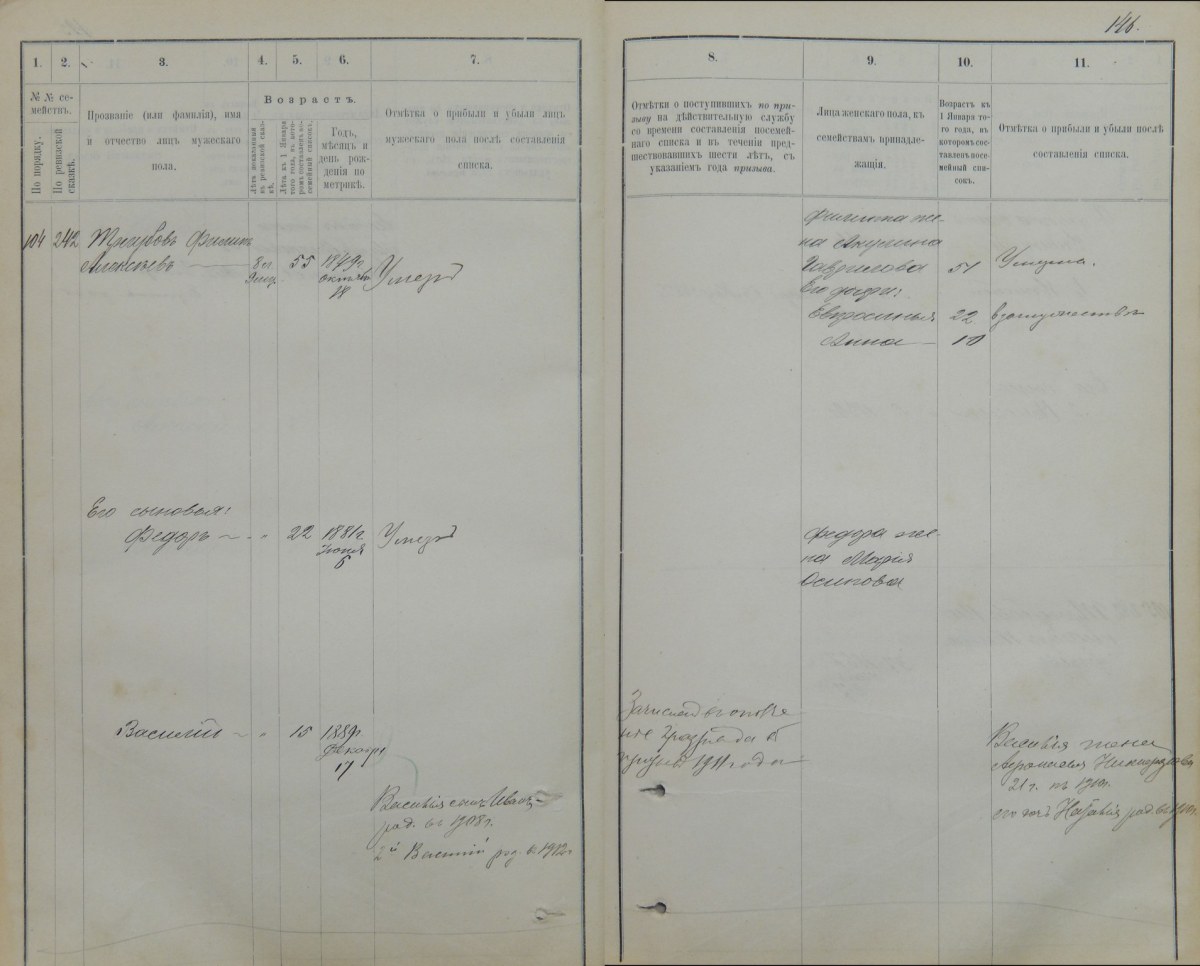 146.
1.
2.
3.
4.
5.
6.
7.
№ № се-
мействъ.
По порядку.
По ревизской
сказкѣ.
Прозваніе (или фамилія), имя
и отчество лицъ мужескаго
пола.
Возрастъ.
Лѣта показанныя
въ ревизской сказ-
кѣ.
Лѣта къ 1 Января
того года, въ кото-
ромъ составленъ по-
семейный списокъ.
Годъ,
мѣсяцъ и
день рож-
денія по
метрикѣ.
Отмѣтка о прибыли и убыли лицъ
мужескаго пола послѣ составленія
списка.
104 242
Филипъ
Алексѣевъ
55
1849 г
октября
Умеръ
Его сыновья:
Федоръ 22 1881 г
6
Умеръ
Василій 15 1889 г
Декабря
17
Василія сынъ Иванъ
род. въ 1908 г.
2й Василій род. въ 1912 г
8.
9.
10.
11.
Отмѣтки о поступившихъ по при-
зыву на дѣйствительную службу
со времени составленія посемей-
наго списка и въ теченіи пред-
шествовавшихъ шести лѣтъ, съ
указаніемъ года призыва.
Лица женскаго пола, къ
семействамъ принадле-
жащія.
Возрастъ къ
1 Января то-
го года, въ
которомъ сос-
тавленъ посе-
мейный спи-
сокъ.
Отмѣтка о прибыли и убыли послѣ
составленія списка.
Филипа же-
на Акулина
Гаврилова 51 Умерла.
Его дочери:
22 в замужествѣ
Анна
Федора же-
на Марія
Осипова
Зачисленъ въ ополче-
ніе разряда въ
1911 года
Василія жена
21 г. въ 1910 г.
его дочь Наталія род. въ